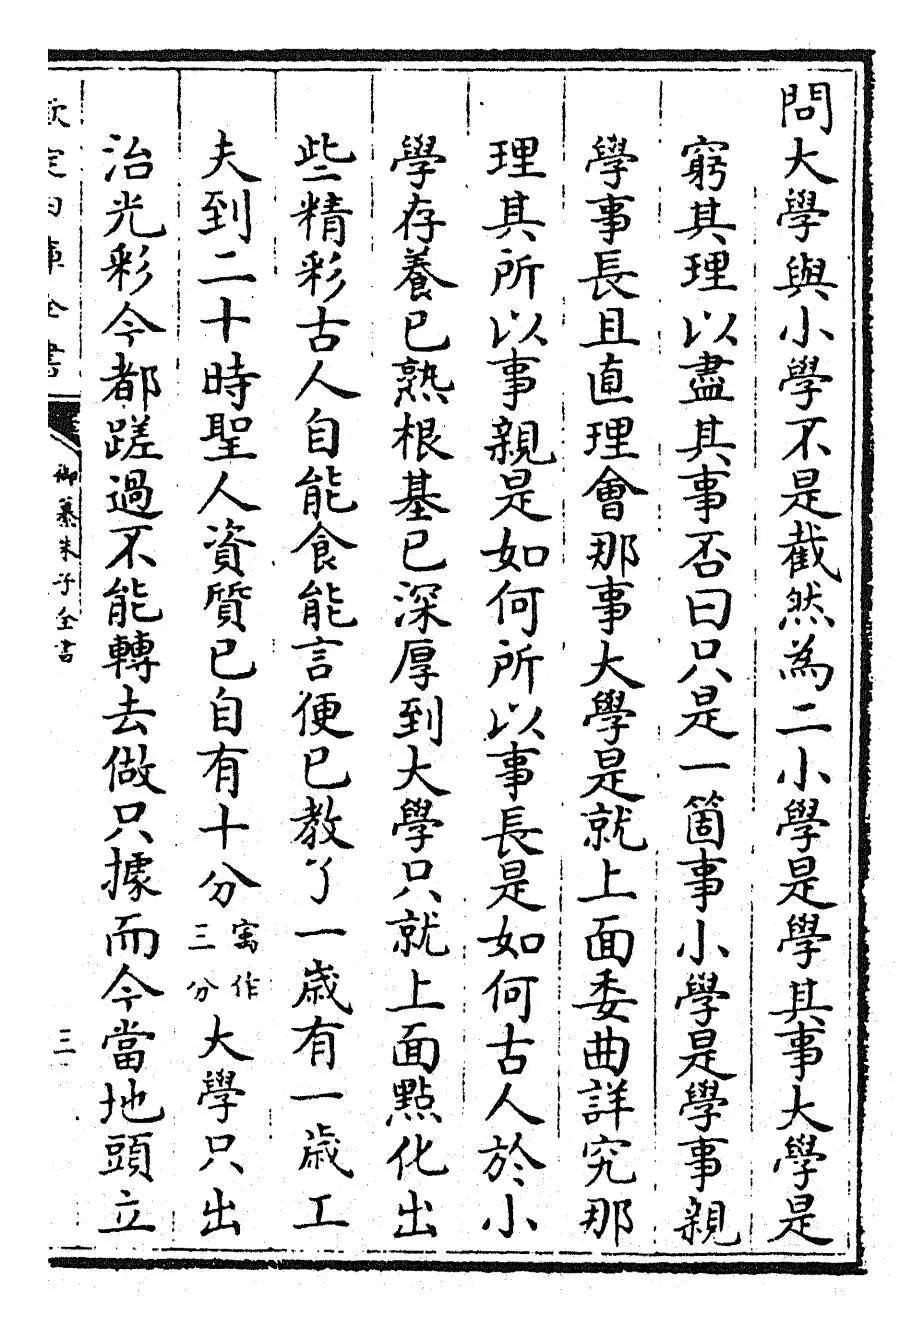 問大學與小學不是截然為二小學是學其事大學是
窮其理以盡其事否曰只是一箇事小學是學事親
學事長且直理會那事大學是就上面委曲詳究那
理其所以事親是如何所以事長是如何古人於小
學存養已熟根基已深厚到大學只就上面點化出
些精彩古人自能食能言便已教了一歲有一歲工
夫到二十時聖人資質已自有十分
寓作
三分
大學只出
治光彩今都蹉過不能轉去做只據而今當地頭立
欽定四庫全書
御纂朱子全書
三